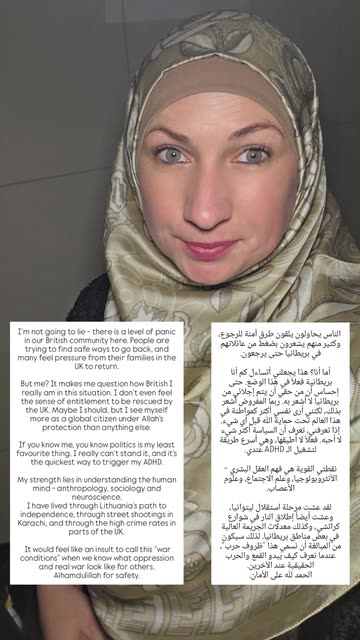 I'm not going to lie - there is a level of panic
in our British community here. People are
trying to find safe ways to go back, and
many feel pressure from their families in the
UK to return.
But me? It makes me question how British I
really am in this situation. I don't even feel
the sense of entitlement to be rescued by
the UK. Maybe I should, but I see myself
more as a global citizen under Allah's
protection than anything else.
If you know me, you know politics is my least
favourite thing. I really can't stand it, and it's
the quickest way to trigger my ADHD.
My strength lies in understanding the human
mind - anthropology, sociology and
neuroscience.
I have lived through Lithuania's path to
independence, through street shootings in
Karachi, and through the high crime rates in
parts of the UK.
It would feel like an insult to call this "war
conditions" when we know what oppression
and real war look like for others.
Alhamdulillah for safety.
الناس يحاولون يلقون طرق آمنة للرجوع،
وكثير منهم يشعرون بضغط من عائلاتهم
في بريطانيا حتى يرجعون.
أما أنا؟ هذا يجعلني أتساءل كم أنا
بريطانية فعلاً في هذا الوضع. حتى
إحساس أن من حقي أن يتم إجلائي من
بريطانيا لا أشعر به. ربما المفروض أشعر
بذلك، لكنني أرى نفسي أكثر كمواطنة في
هذا العالم تحت حماية الله قبل أي شيء.
إذا تعرفني، تعرف أن السياسة أكثر شيء
لا أحبه. فعلاً لا أطيقها، وهي أسرع طريقة
لتشغيل الـ ADHD عندي.
نقطتي القوية هي فهم العقل البشري -
الأنثروبولوجيا، وعلم الاجتماع، وعلوم
الأعصاب.
لقد عشت مرحلة استقلال ليتوانيا،
وعشت أيضاً إطلاق النار في شوارع
كراتشي، وكذلك معدلات الجريمة العالية
في بعض مناطق بريطانيا. لذلك سيكون
من المبالغة أن نسمي هذا "ظروف حرب"،
عندما نعرف كيف يبدو القمع والحرب
الحقيقية عند الآخرين.
الحمد لله على الأمان.